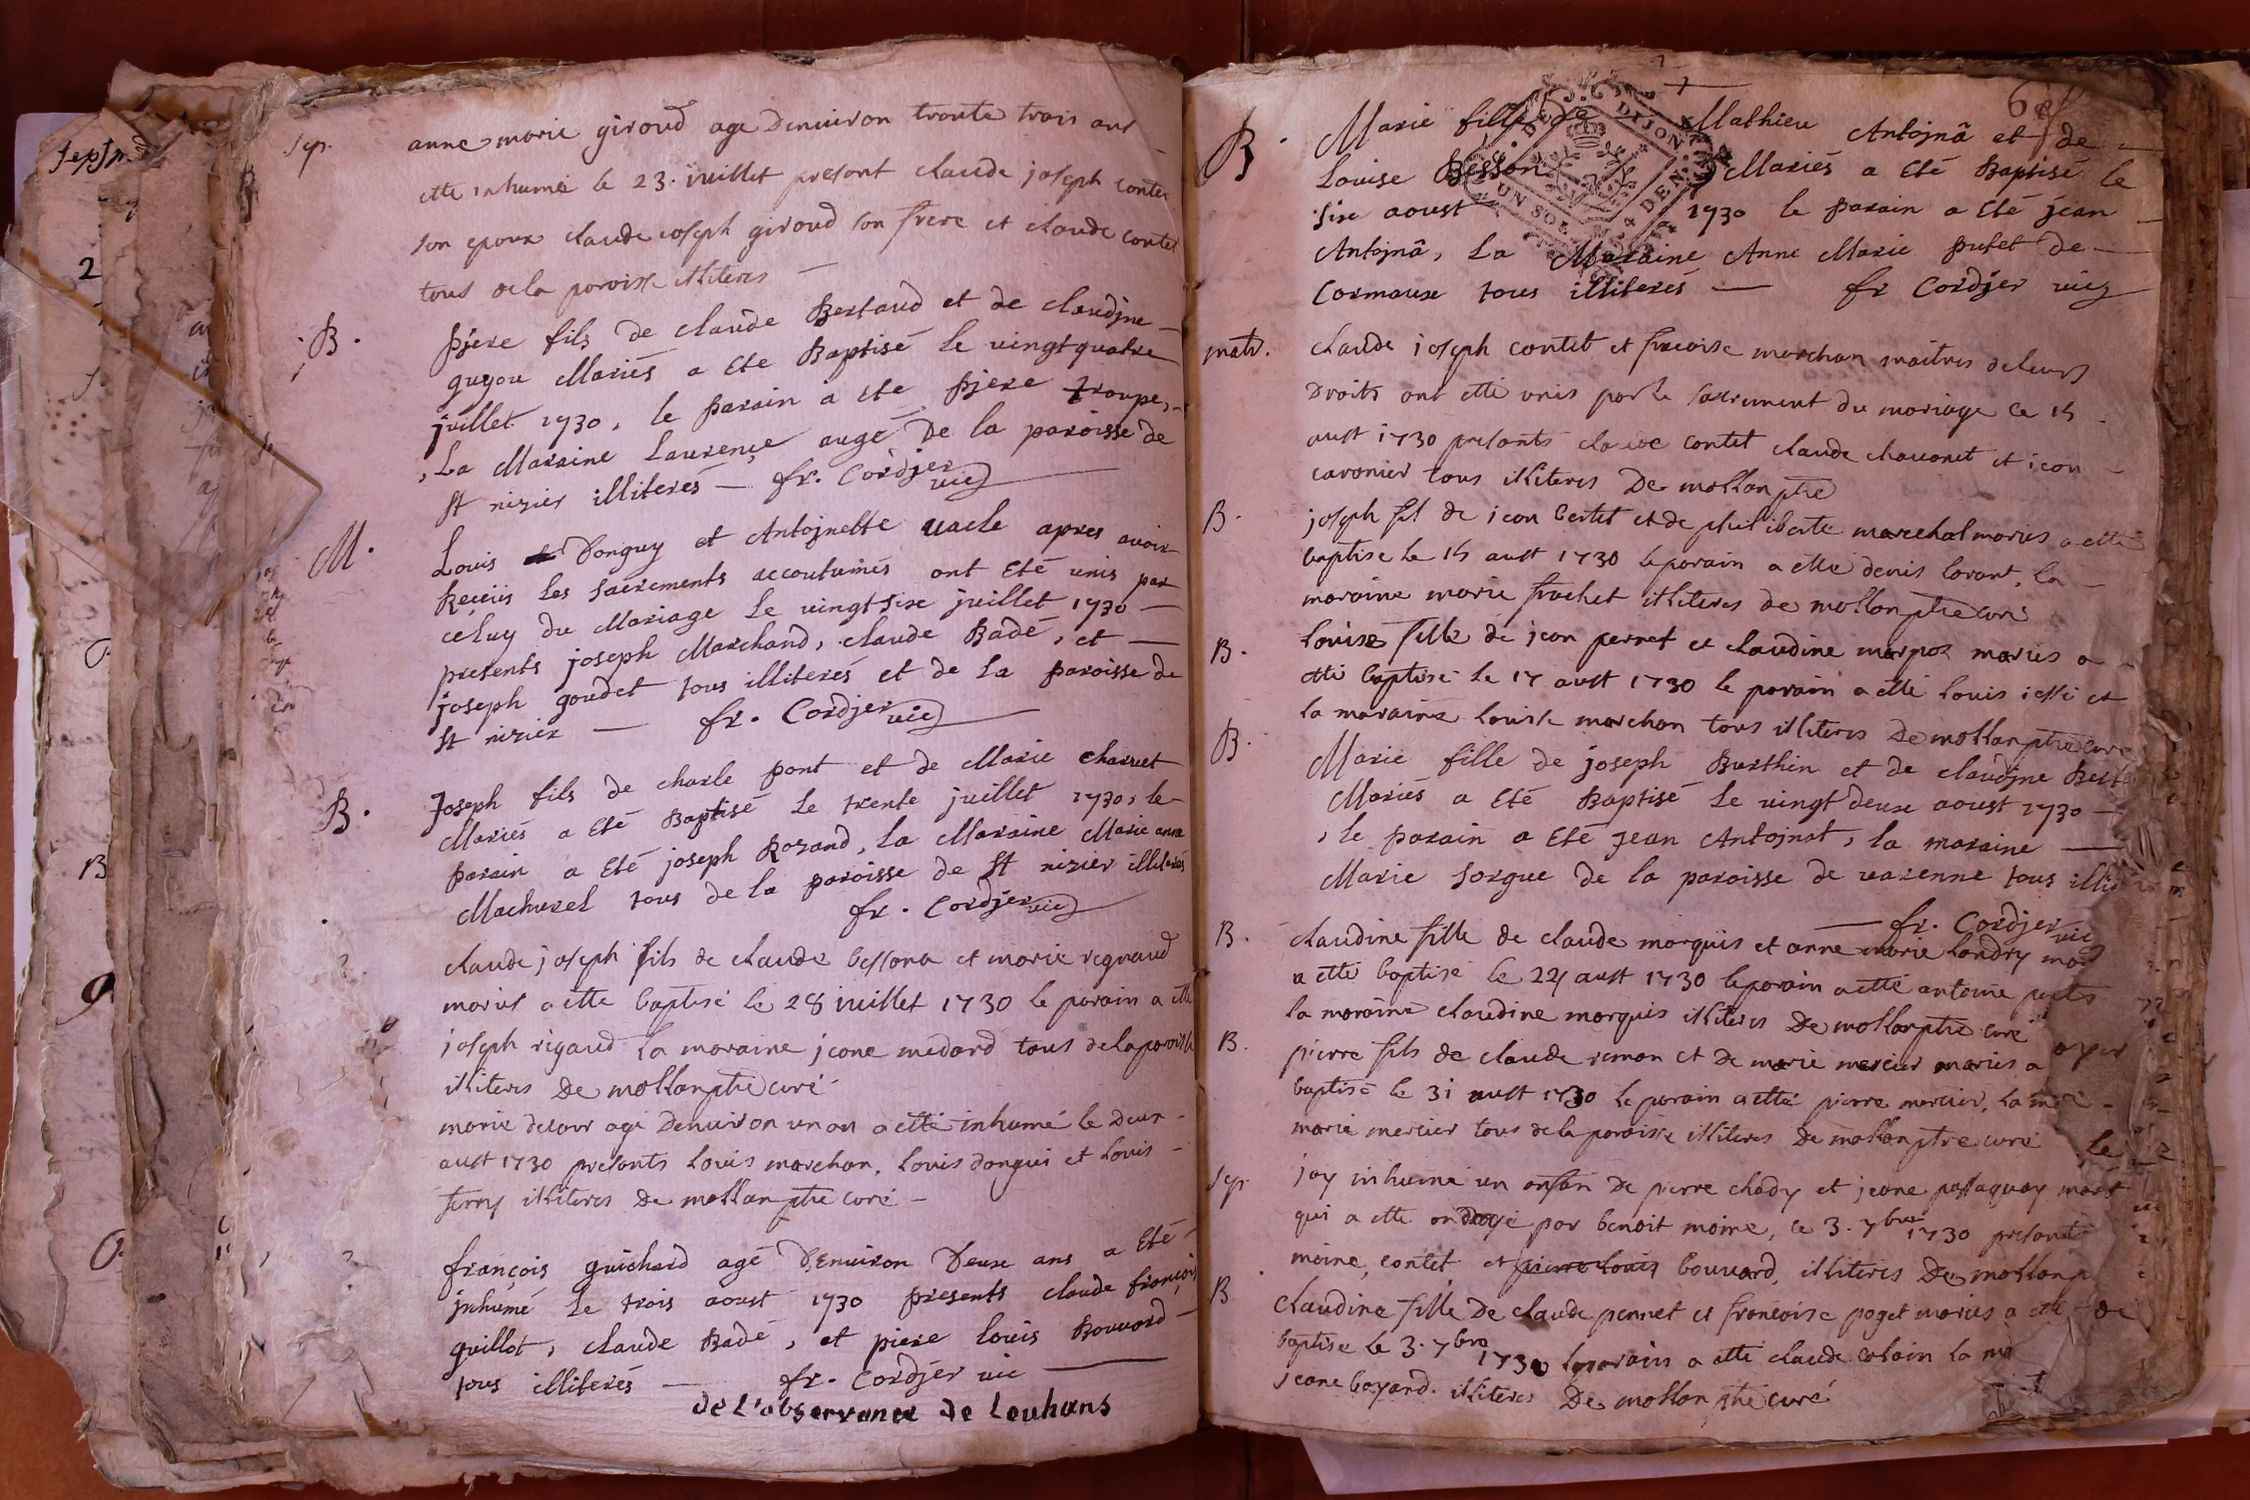 Sep.
anne marie giroud age denuiron trante trois ans
ette inhumé le 23. iuillet presant claude joseph contet
son epoux claude ioseph giroud son frere et claude contet
tous de la paroisse illiteres
B.
pjere fils de claude Bertaud et de claudjne
guyou Mariés a Eté Baptisé le uingtquatre
juillet 1730, le parain a Eté pjere troupe,
, La Maraine Laurençe augé De la paroisse de
St nizier illiterés fr. Cordjer uic
M.
Louis Donguy et Antojnette uacle apres auoir
Reçeüs Les Sacrements accoutumés ont Eté unis par
celuy du Mariage Le uingtsixe juillet 1730
presents joseph Marchand, claude Badé, et
joseph goudet tous illiterés et de La paroisse de
St nizier fr. Cordjer uic
B.
Joseph fils de charle pont et de Marie charuet
Mariés a Eté Baptisé Le trente juillet 1730, le
parain a Eté joseph Rozand, La Maraine Marie anne
Machurel tous de la paroisse de St nizier illiterés
fr. Cordjer uic
claude joseph fils de claude bessona et marie regnaud
mariés a ette baptisé le 28 iuillet 1730 le parain a ette
joseph rigaud la maraine jeane medard tous de la paroisse
illiteres De mollan ptre curé
marie delour agé denuiron un an a etté inhumé le deux
aust 1730 presants Louis marchan, Louis dongui et Louis
ferry illiteres De mollan ptre curé
françois guichard agé D'Enuiron Deux ans a Eté
jnhumé Le trois aoust 1730 presents claude françois
guillot, claude Badé, et piere Louis Bouuard
tous illiterés fr. Cordjer uic
de L'obseruance de Louhans
B.
Marie fille de Mathieu Antojnâ et de
Louise Besson Mariés a Eté Baptisé le
sixe aoust 1730 le parain a Eté jean
Antojnâ, La Maraine Anne Marie putet de
Cormoux tous illiterés fr Cordjer uic
DIJON
UN SOL
DEN.
matr.
claude joseph contet et francoise marchan maitres de leurs
Droits ont etté unis par le sacrement du mariage ce 15
aust 1730 presants claude contet claude chauanet et jean
caronier tous illiteres De mollan ptre
B.
joseph fil de jean bertet et de philiberte marechal mariés a etté
baptise le 15 aust 1730 le parain a etté denis lorant, la
maraine marie frachet illiteres de mollan ptre curé
B.
Louise fille de jean pernet et claudine marpoz mariés a
etté baptisé le 17 aust 1730 le parain a etté Louis et
la maraine Louise marchan tous illiteres De mollan ptre curé
B.
Marie fille de joseph Burthin et de claudjne
Mariés a Eté Baptisé Le uingt deuxe aoust 1730
, le parain a Eté Jean Antojnat, la maraine
Marie Sorgue de la paroisse de uarenne tous
fr. Cordjer uic
B.
claudine fille de claude marquis et anne marie landry
a etté baptisé le 24 aust 1730 le parain a etté antoine
la maraine claudine marquis illiteres De mollan ptre curé
B.
pierre fils de claude remon et de marie mercier mariés a
baptisé le 31 aust 1730 le parain a etté pierre mercier, la
marie mercier tous de la paroisse illiteres De mollan ptre curé
Sep.
jay inhumé un anfan De pierre chady et jeane passaquay
qui a ette ondoyé par benoit moine, ce 3. 7bre 1730
moine, contet et pierre louis bouuard, illiteres De mollan
B
claudine fille De claude pennet et francoise poget mariés a
baptise le 3. 7bre 1730 le parain a etté claude colain la
jeane bayard. illiteres De mollan ptre curé